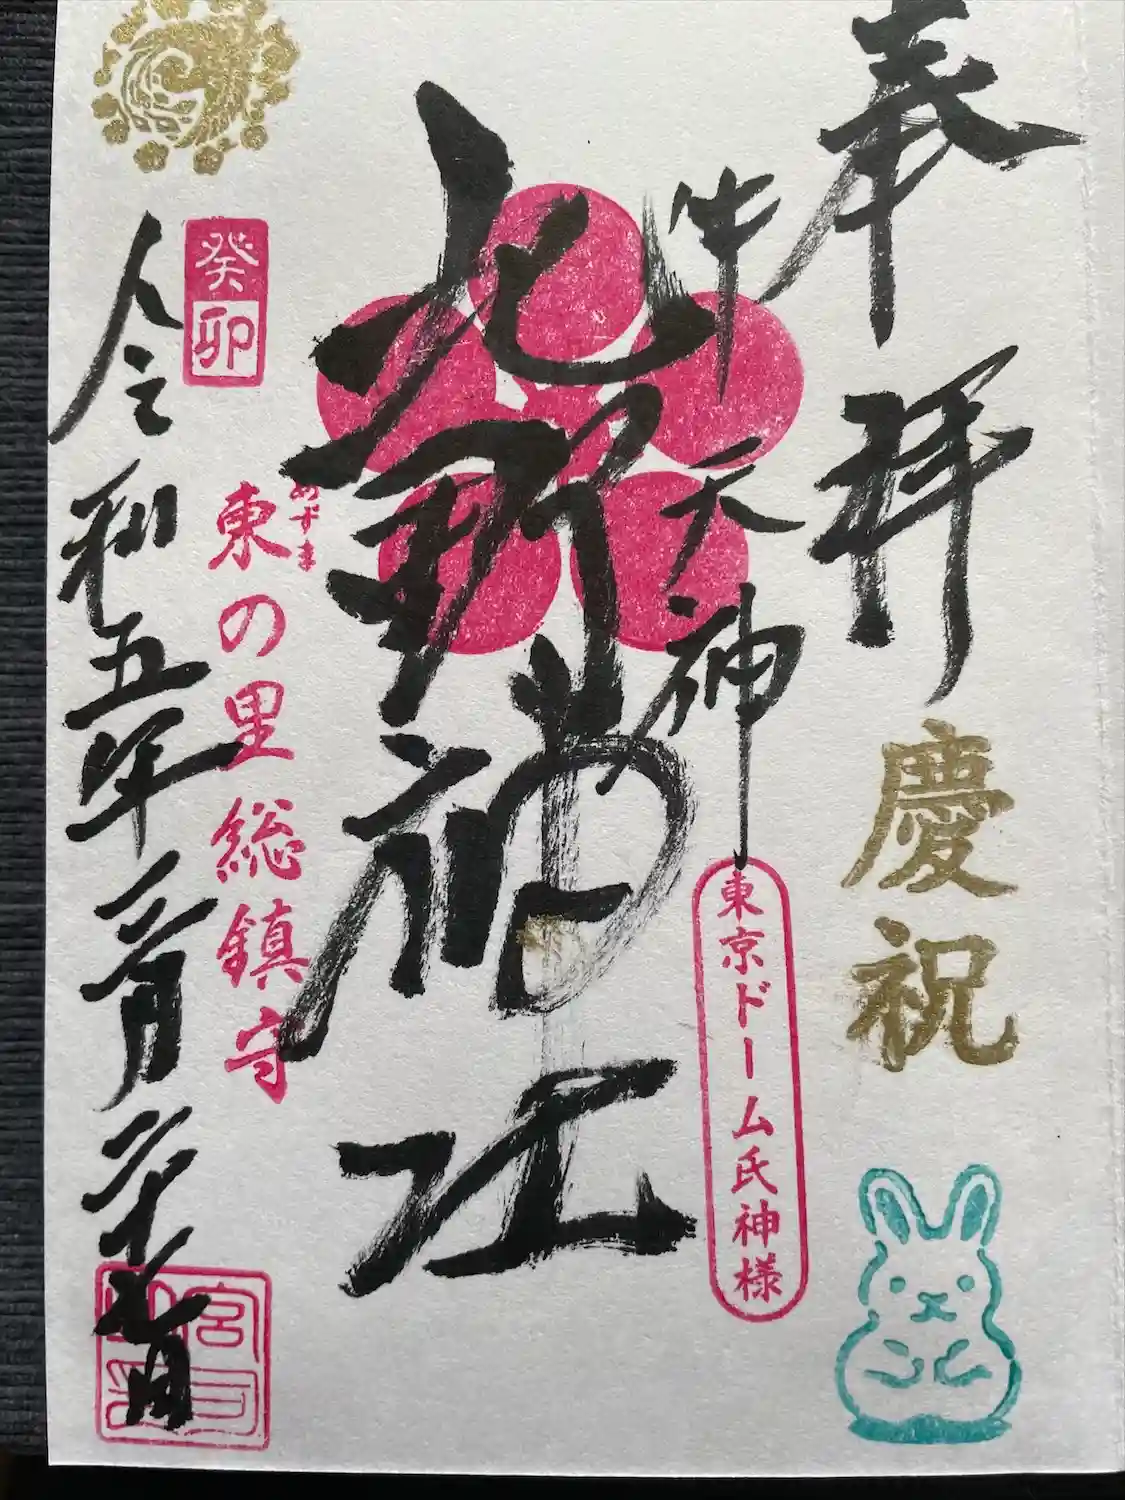 奉拝
慶祝
牛天神
東京ドーム氏神様
北野神社
あずま
東の里総鎮守
癸卯
令和五年
宮司